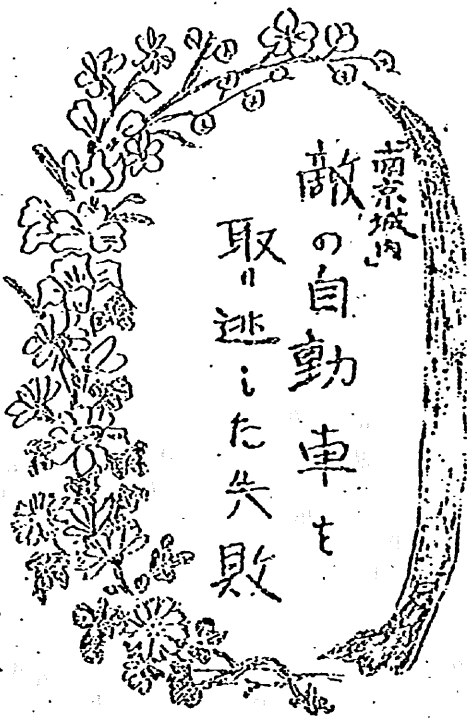 「南京城内」
敵の自動車を
取り逃した失敗